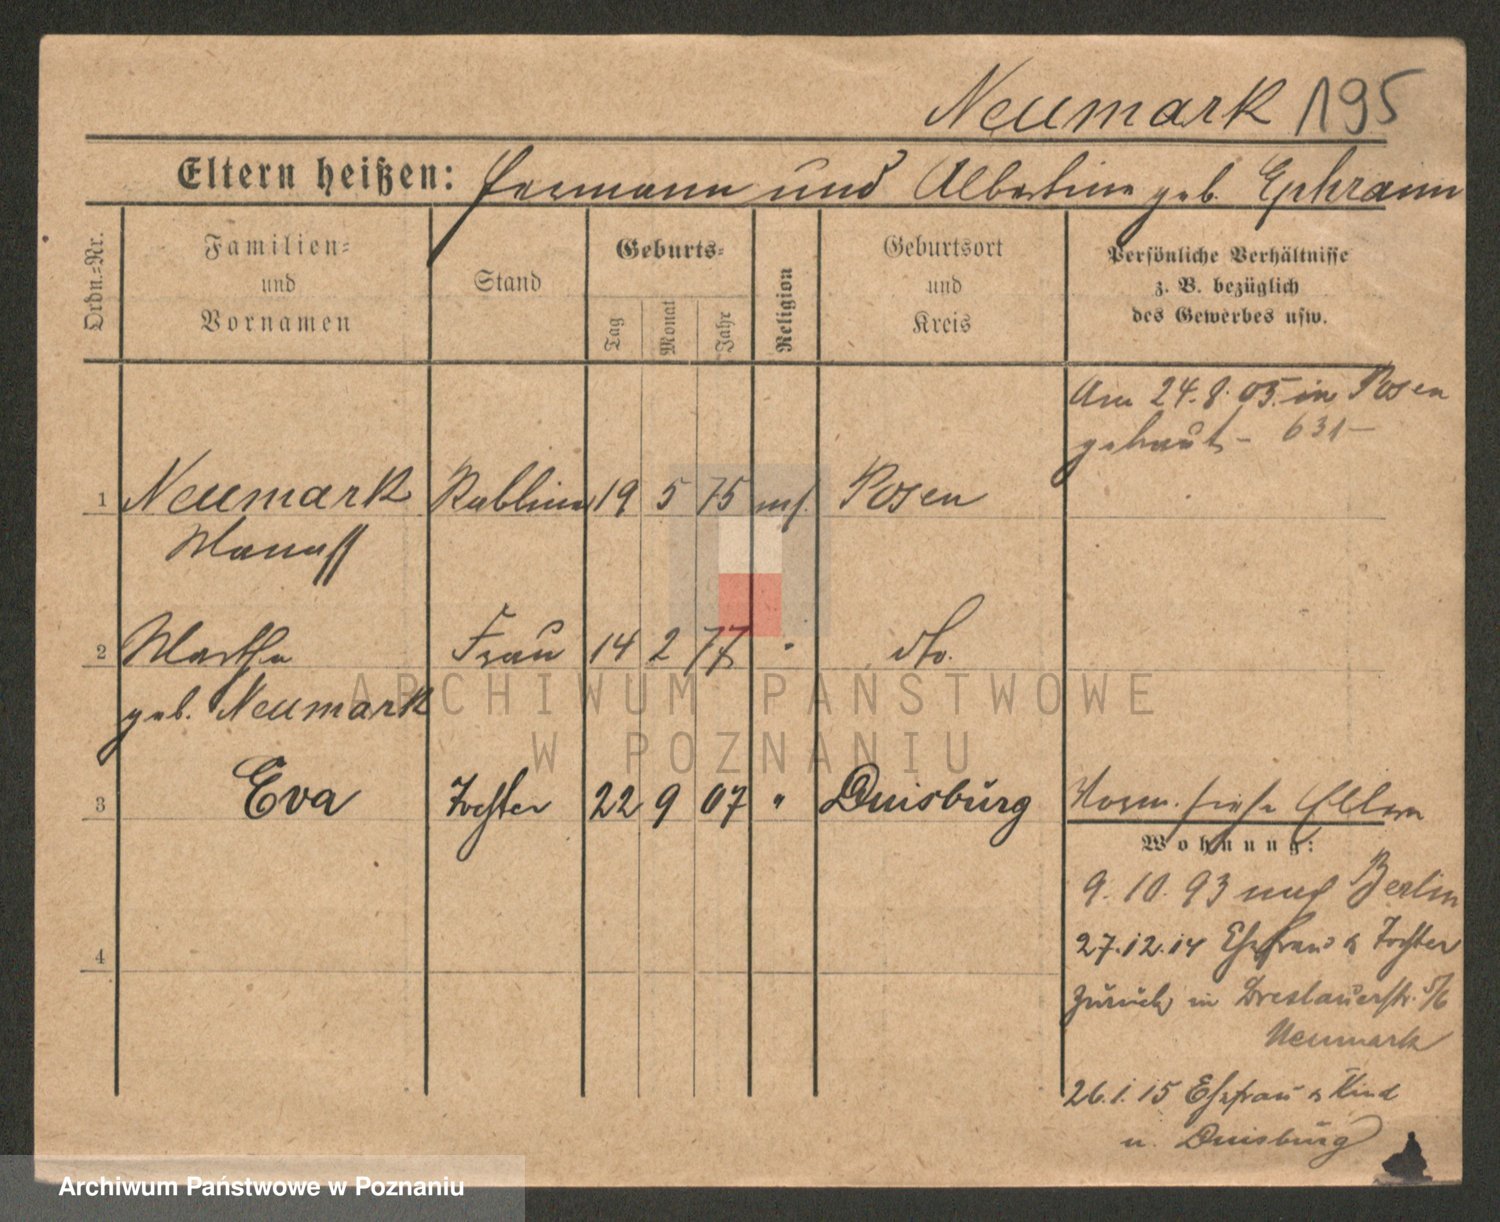 Neumark 195
Eltern heißen: Hermann und Albertine geb. Ephraim
Ordn.=Nr.
Familien=
und
Vornamen
Stand
Geburts=
Tag
Monat
Jahr
Religion
Geburtsort
und
Kreis
Persönliche Verhältnisse
z. B. bezüglich
des Gewerbes usw.
Am 24.8.05. in Posen
getraut – 631 –
1 Neumark Rabbiner 19 5 75 mos. Posen
Manass
2 Martha Frau 14 2 77 " dto.
geb. Neumark
3 Eva Tochter 22 9 07 " Duisburg Verm. siehe Eltern
Wohnung:
9.10.93 nach Berlin
27.12.14 Ehefrau & Tochter
zurück in Breslauerstr. 5/6
Neumark
4
26.1.15 Ehefrau & Kind
n. Duisburg
ARCHIWUM PAŃSTWOWE
W POZNANIU
Archiwum Państwowe w Poznaniu